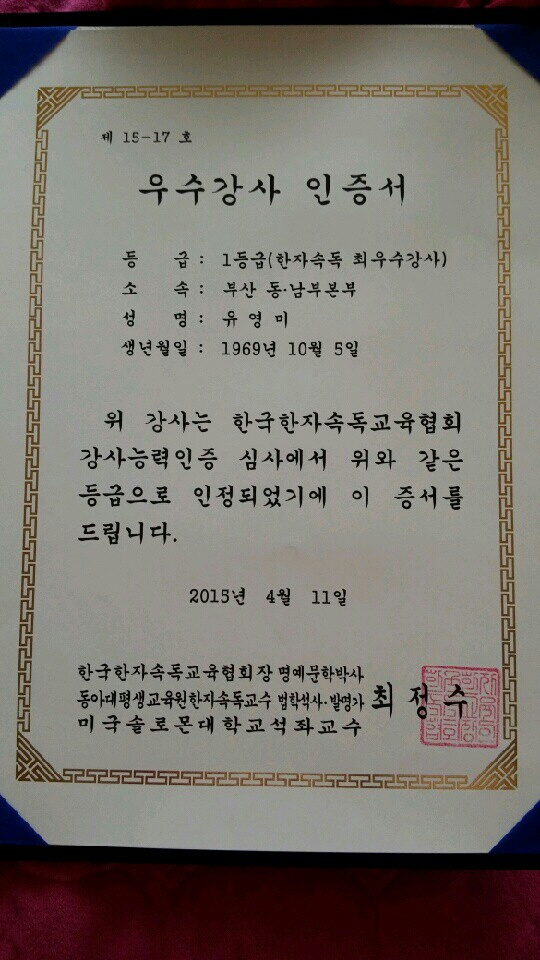 제 15-17 호
우수강사 인증서
등 급 : 1등급(한자속독 최우수강사)
소 속 : 부산 동·남부본부
성 명 : 유 영 미
생년월일 : 1969년 10월 5일
위 강사는 한국한자속독교육협회
강사능력인증 심사에서 위와 같은
등급으로 인정되었기에 이 증서를
드립니다.
2015년 4월 11일
한국한자속독교육협회장 명예문학박사
동아대평생교육원한자속독교수 법학석사·발명가 최 정 수
미국솔로몬대학교석좌교수